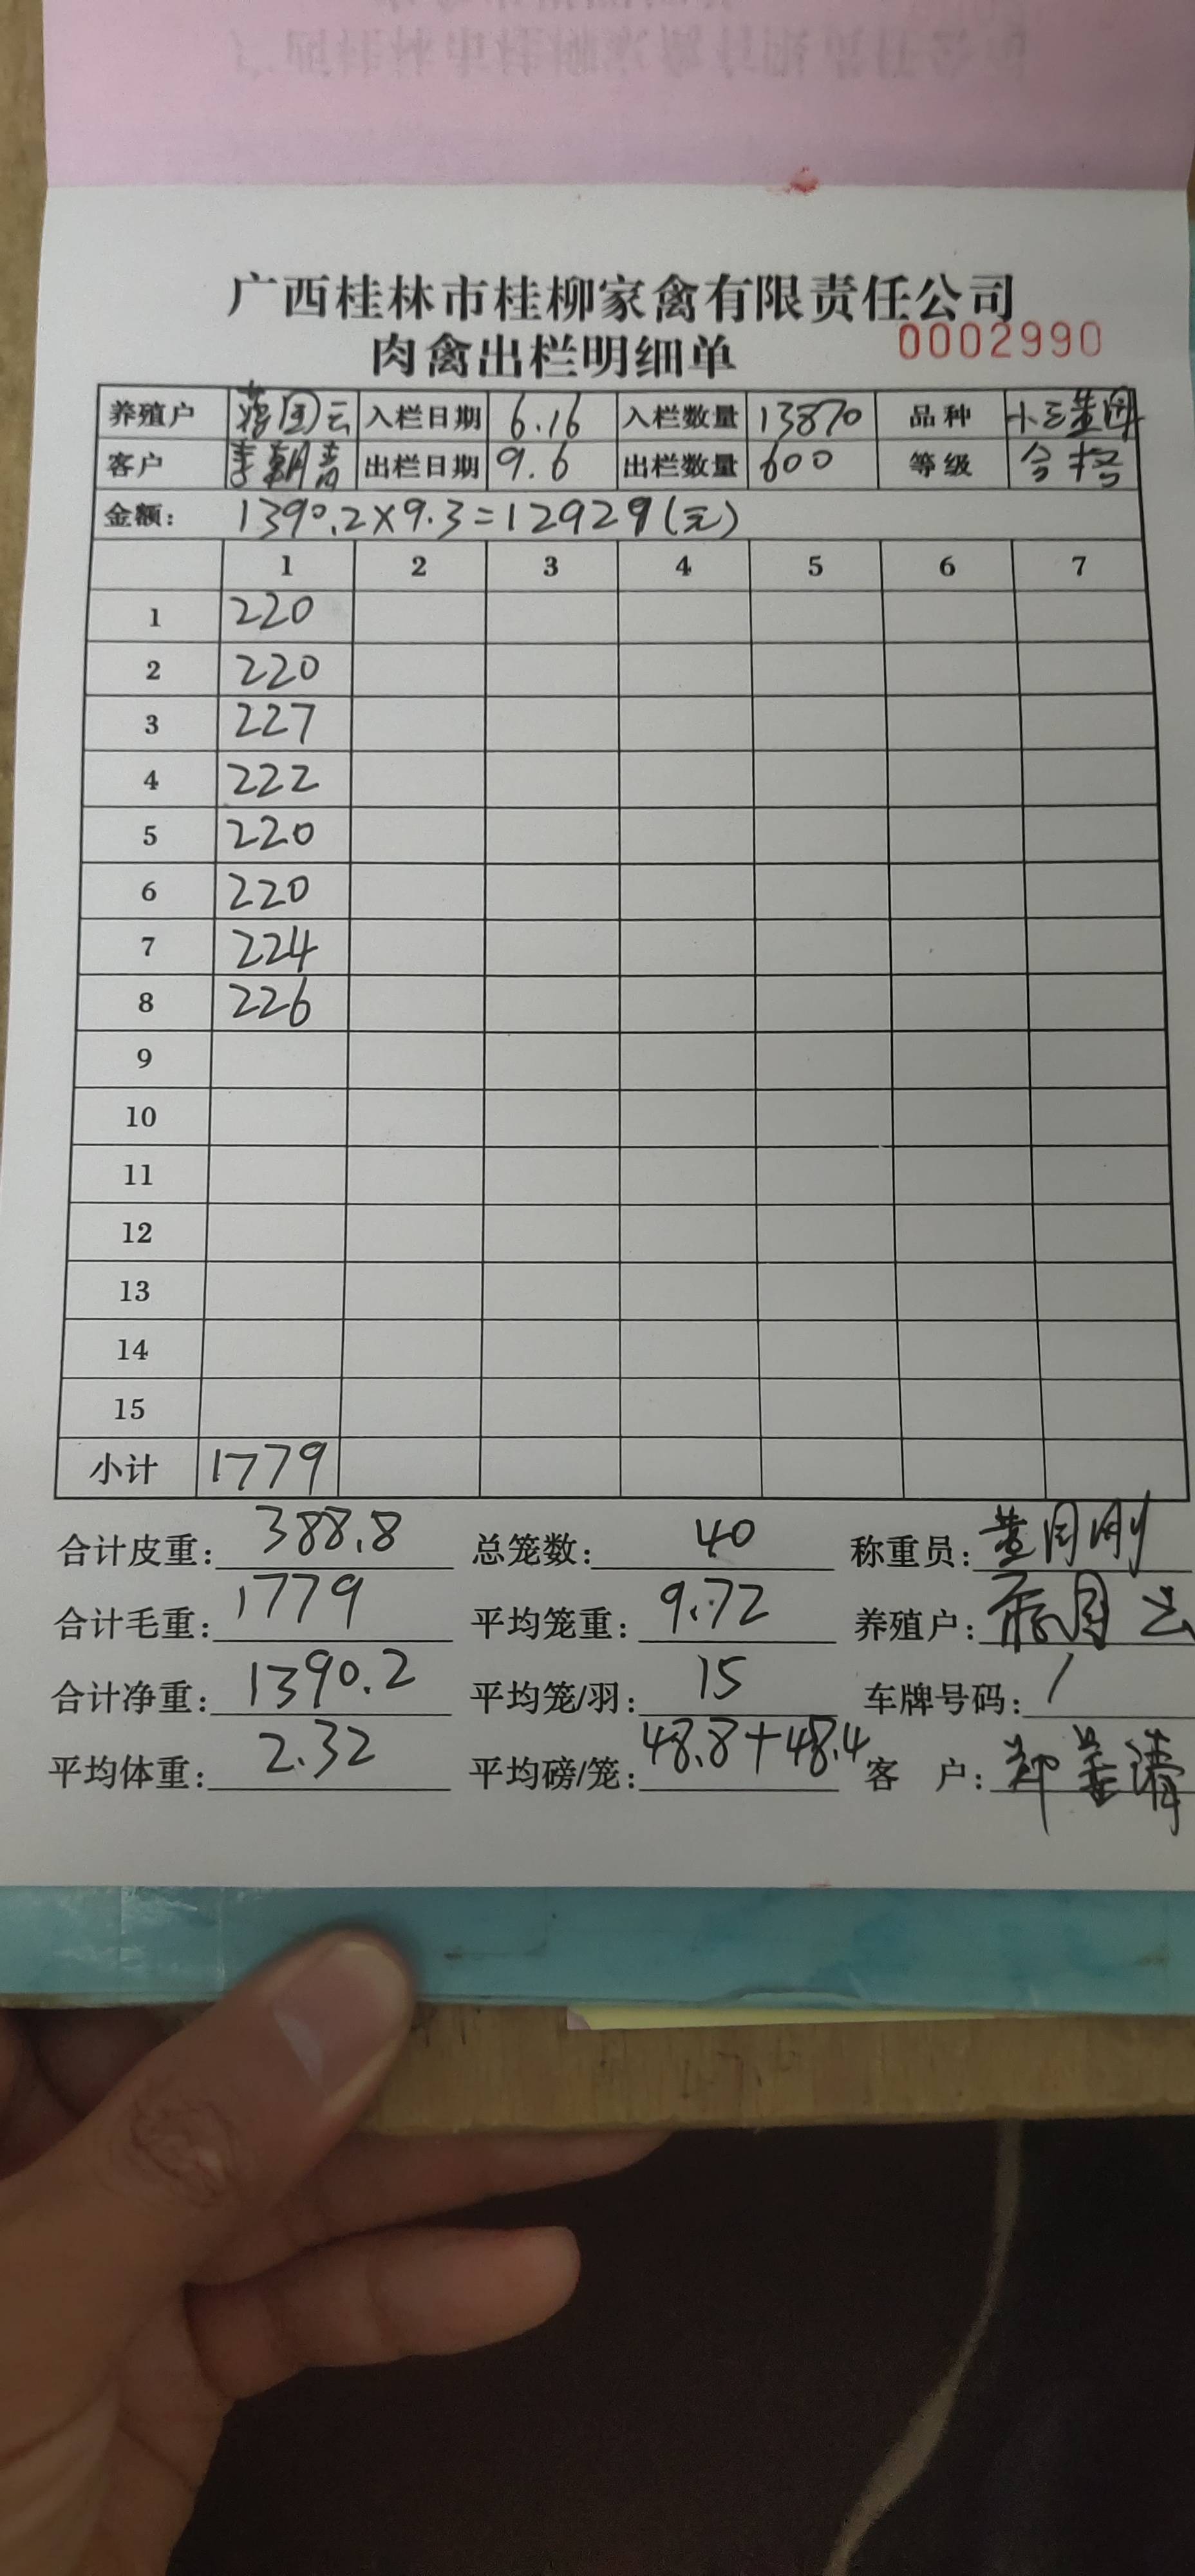 广西桂林市桂柳家禽有限责任公司
肉禽出栏明细单 0002990
养殖户 蒋团云 入栏日期 6.16 入栏数量 13870 品种
客户 李朝青 出栏日期 9.6 出栏数量 600 等级 合格
金额: 1390.2×9.3=12929(元)
1 2 3 4 5 6 7
1 220
2 220
3 227
4 222
5 220
6 220
7 224
8 226
9
10
11
12
13
14
15
小计 1779
合计皮重: 388.8 总笼数: 40 称重员:
合计毛重: 1779 平均笼重: 9.72 养殖户:
合计净重: 1390.2 平均笼/羽: 15 车牌号码: /
平均体重: 2.32 平均磅/笼: 48.8+48.4 客 户: